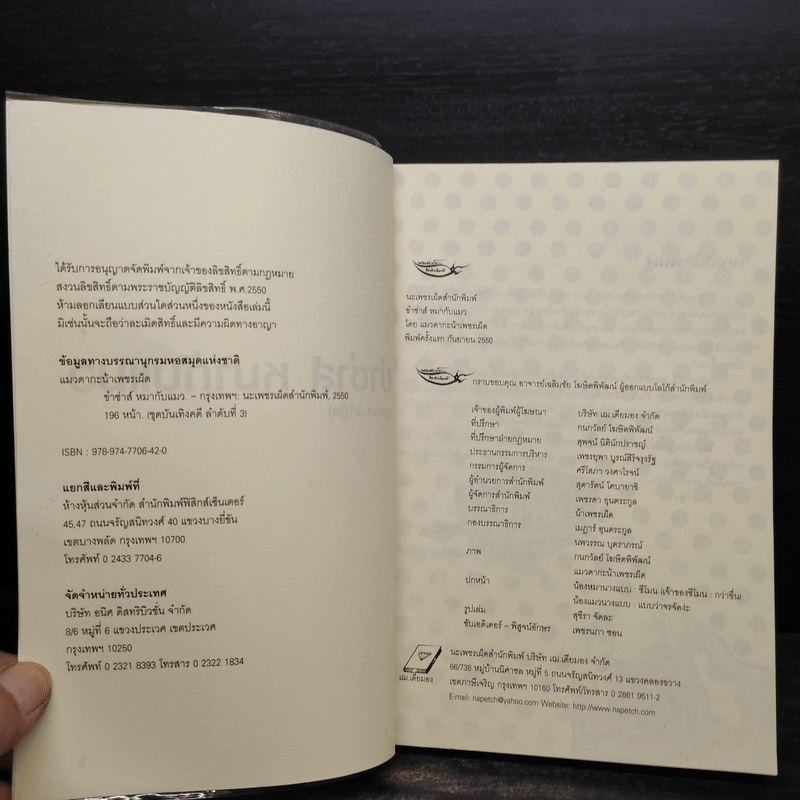 ได้รับการอนุญาตจัดพิมพ์จากเจ้าของลิขสิทธิ์ตามกฎหมาย
สงวนลิขสิทธิ์ตามพระราชบัญญัติลิขสิทธิ์ พ.ศ.2550
ห้ามลอกเลียนแบบส่วนใดส่วนหนึ่งของหนังสือเล่มนี้
มิเช่นนั้นจะถือว่าละเมิดสิทธิ์และมีความผิดทางอาญา
ข้อมูลทางบรรณานุกรมหอสมุดแห่งชาติ
แมวดากะน้าเพชรเผ็ด
ขำซ่าส์ หมากับแมว. – กรุงเทพฯ: นะเพชรเผ็ดสำนักพิมพ์, 2550
196 หน้า. (ชุดบันเทิงคดี ลำดับที่ 3)
ISBN : 978-974-7706-42-0
แยกสีและพิมพ์ที่
ห้างหุ้นส่วนจำกัด สำนักพิมพ์ฟิสิกส์เซ็นเตอร์
45,47 ถนนจรัญสนิทวงศ์ 40 แขวงบางยี่ขัน
เขตบางพลัด กรุงเทพฯ 10700
โทรศัพท์ 0 2433 7704-6
จัดจำหน่ายทั่วประเทศ
บริษัท อนิศ ดิสทริบิวชั่น จำกัด
8/6 หมู่ที่ 6 แขวงประเวศ เขตประเวศ
กรุงเทพฯ 10250
โทรศัพท์ 0 2321 8393 โทรสาร 0 2322 1834
นะเพชรเผ็ดสำนักพิมพ์
ขำซ่าส์ หมากับแมว
โดย แมวดากะน้าเพชรเผ็ด
พิมพ์ครั้งแรก กันยายน 2550
กราบขอบคุณ อาจารย์เฉลิมชัย โฆษิตพิพัฒน์ ผู้ออกแบบโลโก้สำนักพิมพ์
เจ้าของผู้พิมพ์ผู้โฆษณา บริษัท เฌ.เดียมอง จำกัด
ที่ปรึกษา กนกวัลย์ โฆษิตพิพัฒน์
ที่ปรึกษาฝ่ายกฎหมาย สุพจน์ นิตินักปราชญ์
ประธานกรรมการบริหาร เพชรยุพา บูรณ์สิริจรุงรัฐ
กรรมการผู้จัดการ ศรีโสภา วงศาโรจน์
ผู้อำนวยการสำนักพิมพ์ สุดารัตน์ โคบายาชิ
ผู้จัดการสำนักพิมพ์ เพชรดา อุนตระกูล
บรรณาธิการ น้าเพชรเผ็ด
กองบรรณาธิการ เมฏาร์ อุนตระกูล
นพวรรณ บุตราภรณ์
ภาพ กนกวัลย์ โฆษิตพิพัฒน์
แมวดากะน้าเพชรเผ็ด
ปกหน้า น้องหมานางแบบ : ซีโมน (เจ้าของซีโมน : กว่าชื่น)
น้องแมวนางแบบ : แบบว่าจรจัดง่ะ
รูปเล่ม สุชีรา จัดละ
ซับเอดิเตอร์ - พิสูจน์อักษร เพชรนภา ซอน
เฌ.เดียมอง
นะเพชรเผ็ดสำนักพิมพ์ บริษัท เฌ.เดียมอง จำกัด
66/738 หมู่บ้านนิศาชล หมู่ที่ 5 ถนนจรัญสนิทวงศ์ 13 แขวงคลองขวาง
เขตภาษีเจริญ กรุงเทพฯ 10160 โทรศัพท์/โทรสาร 0 2861 9511-2
E-mail: napetch@yahoo.com Website: http://www.napetch.com